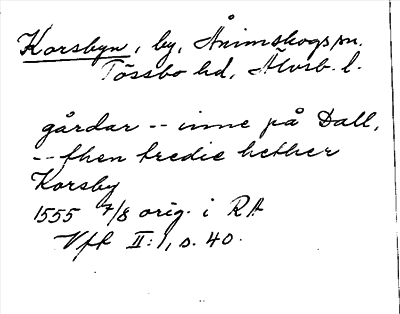 Korsbyn, by, Ånimskogs sn.
Tössbo hd, Älvsb. l.
gårdar -- inne på Dall,
-- then tredie hether
Korsby
1555 7/8 orig. i RA
Vfr II:1, s. 40.